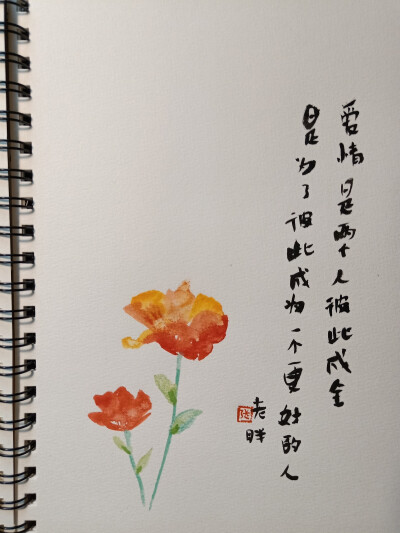 爱情是两个人彼此成全
是为了彼此成为一个更好的人
老胖